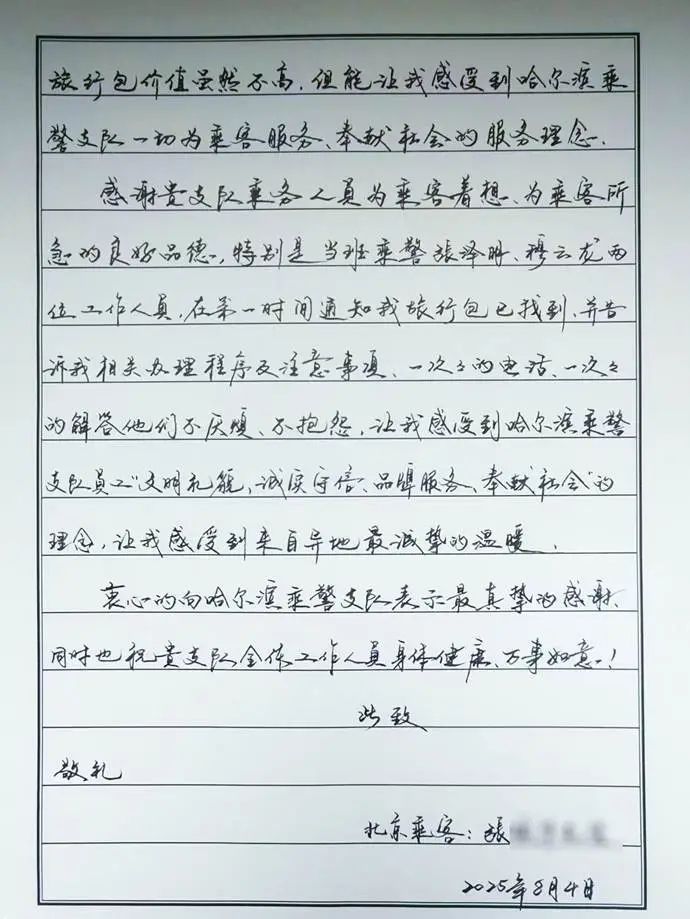 旅行包价值虽然不高，但能让我感受到哈尔滨乘
警支队一切为乘客服务、奉献社会的服务理念。
感谢贵支队乘务人员为乘客着想、为乘客所
急的良好品德，特别是当班乘警张泽明、穆云龙两
位工作人员，在第一时间通知我旅行包已找到，并告
诉我相关办理程序及注意事项、一次々的电话、一次々
的解答他们不厌烦、不抱怨，让我感受到哈尔滨乘警
支队员工“文明礼貌，诚实守信、品牌服务、奉献社会”的
理念，让我感受到来自异地最诚挚的温暖。
衷心的向哈尔滨乘警支队表示最真挚的感谢，
同时也祝贵支队全体工作人员身体健康、万事如意！
此致
敬礼
北京乘客：张
2025年8月4日